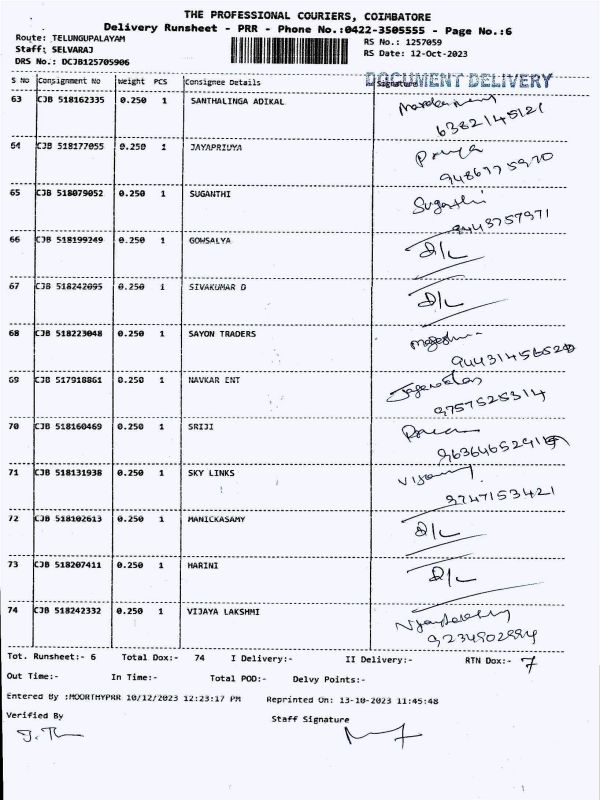 THE PROFESSIONAL COURIERS, COIMBATORE
Delivery Runsheet - PRR - Phone No.:0422-3505555 - Page No.:6
Route: TELUNGUPALAYAM RS No.: 1257059
Staff: SELVARAJ RS Date: 12-Oct-2023
DRS No.: DCJB125705906
S No Consignment No Weight PCS Consignee Details Signature DOCUMENT DELIVERY
63 CJB 518162335 0.250 1 SANTHALINGA ADIKAL
6382145121
64 CJB 518177055 0.250 1 JAYAPRIUYA Priya
9486775970
65 CJB 518079052 0.250 1 SUGANTHI Suganthi
9443757971
66 CJB 518199249 0.250 1 GOWSALYA D/L
67 CJB 518242095 0.250 1 SIVAKUMAR D D/L
68 CJB 518223048 0.250 1 SAYON TRADERS
69 CJB 517918861 0.250 1 NAVKAR ENT
9757525314
70 CJB 518160469 0.250 1 SRIJI
71 CJB 518131938 0.250 1 SKY LINKS
9747153421
72 CJB 518102613 0.250 1 MANICKASAMY D/L
73 CJB 518207411 0.250 1 HARINI D/L
74 CJB 518242332 0.250 1 VIJAYA LAKSHMI
Tot. Runsheet:- 6 Total Dox:- 74 I Delivery:- II Delivery:- RTN Dox:- 7
Out Time:- In Time:- Total POD:- Delvy Points:-
Entered By :MOORTHYPRR 10/12/2023 12:23:17 PM Reprinted On: 13-10-2023 11:45:48
Verified By Staff Signature